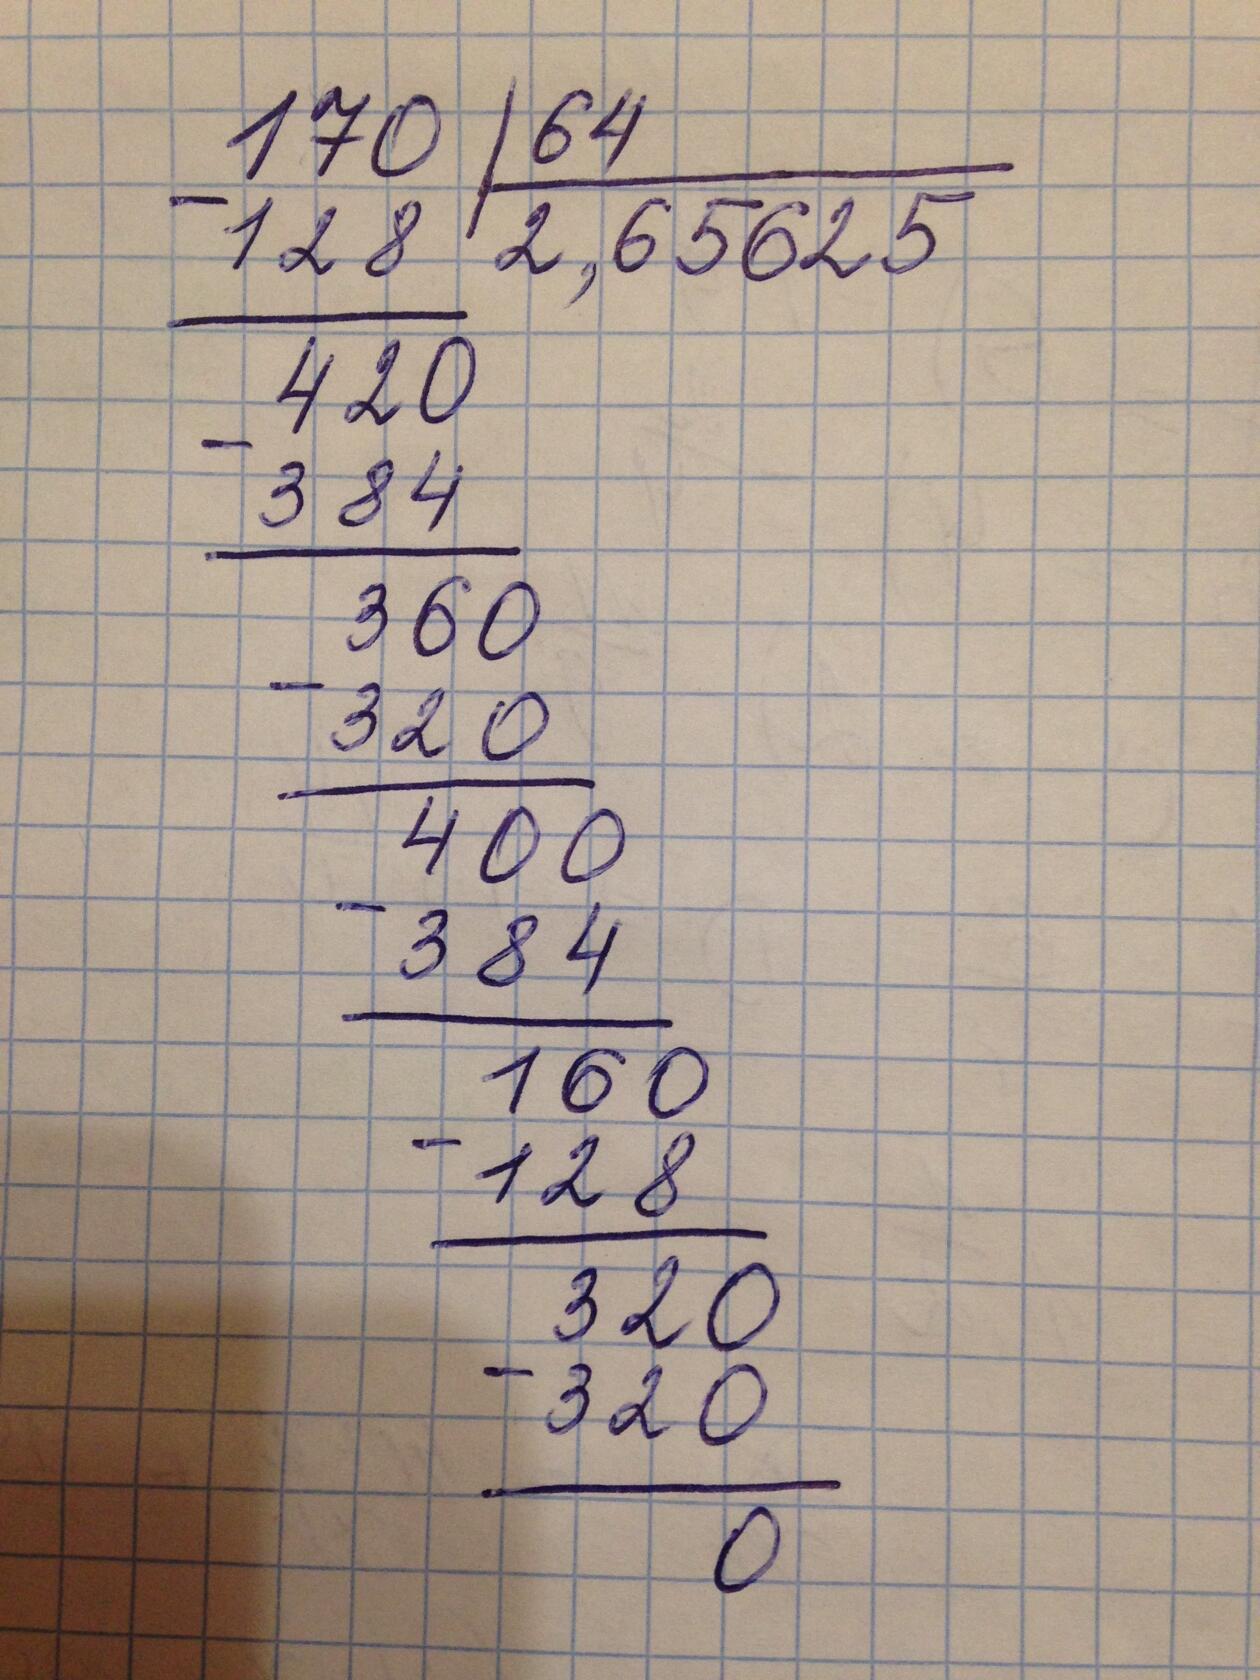 170 64
-128 2,65625
420
-384
360
-320
400
-384
160
-128
320
-320
0